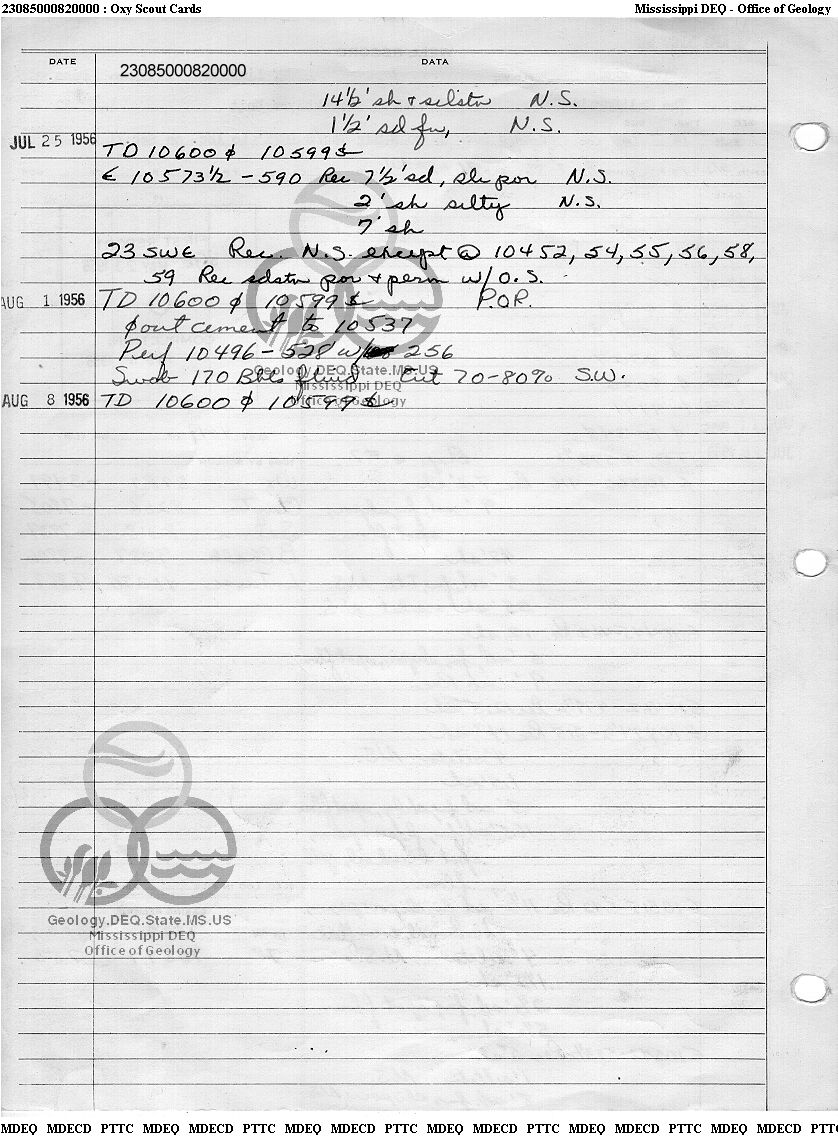 23085000820000 : Oxy Scout Cards Mississippi DEQ - Office of Geology
DATE DATA
23085000820000
14½' sh & silstn N.S.
1½' sd fn, N.S.
JUL 25 1956
TD 10600 ¢ 10599 $
€ 10573½ - 590 Rec 7½' sd, sli por N.S.
2' sh silty N.S.
7' sh
23 SWC Rec. N.S. except @ 10452, 54, 55, 56, 58,
59 Rec sdstn por & perm w/ O.S.
AUG 1 1956 TD 10600 ¢ 10599 $ P.O.P.
out cement to 10537
Perf 10496 - 528 w/ 256
Swab 170 Bbls fluid Cut 70-80% S.W.
Geology.DEQ.State.MS.US
Mississippi DEQ
Office of Geology
AUG 8 1956 TD 10600 ¢ 10599 $
Geology.DEQ.State.MS.US
Mississippi DEQ
Office of Geology
MDEQ MDECD PTTC MDEQ MDECD PTTC MDEQ MDECD PTTC MDEQ MDECD PTTC MDEQ MDECD PTTC MDEQ MDECD PTTC